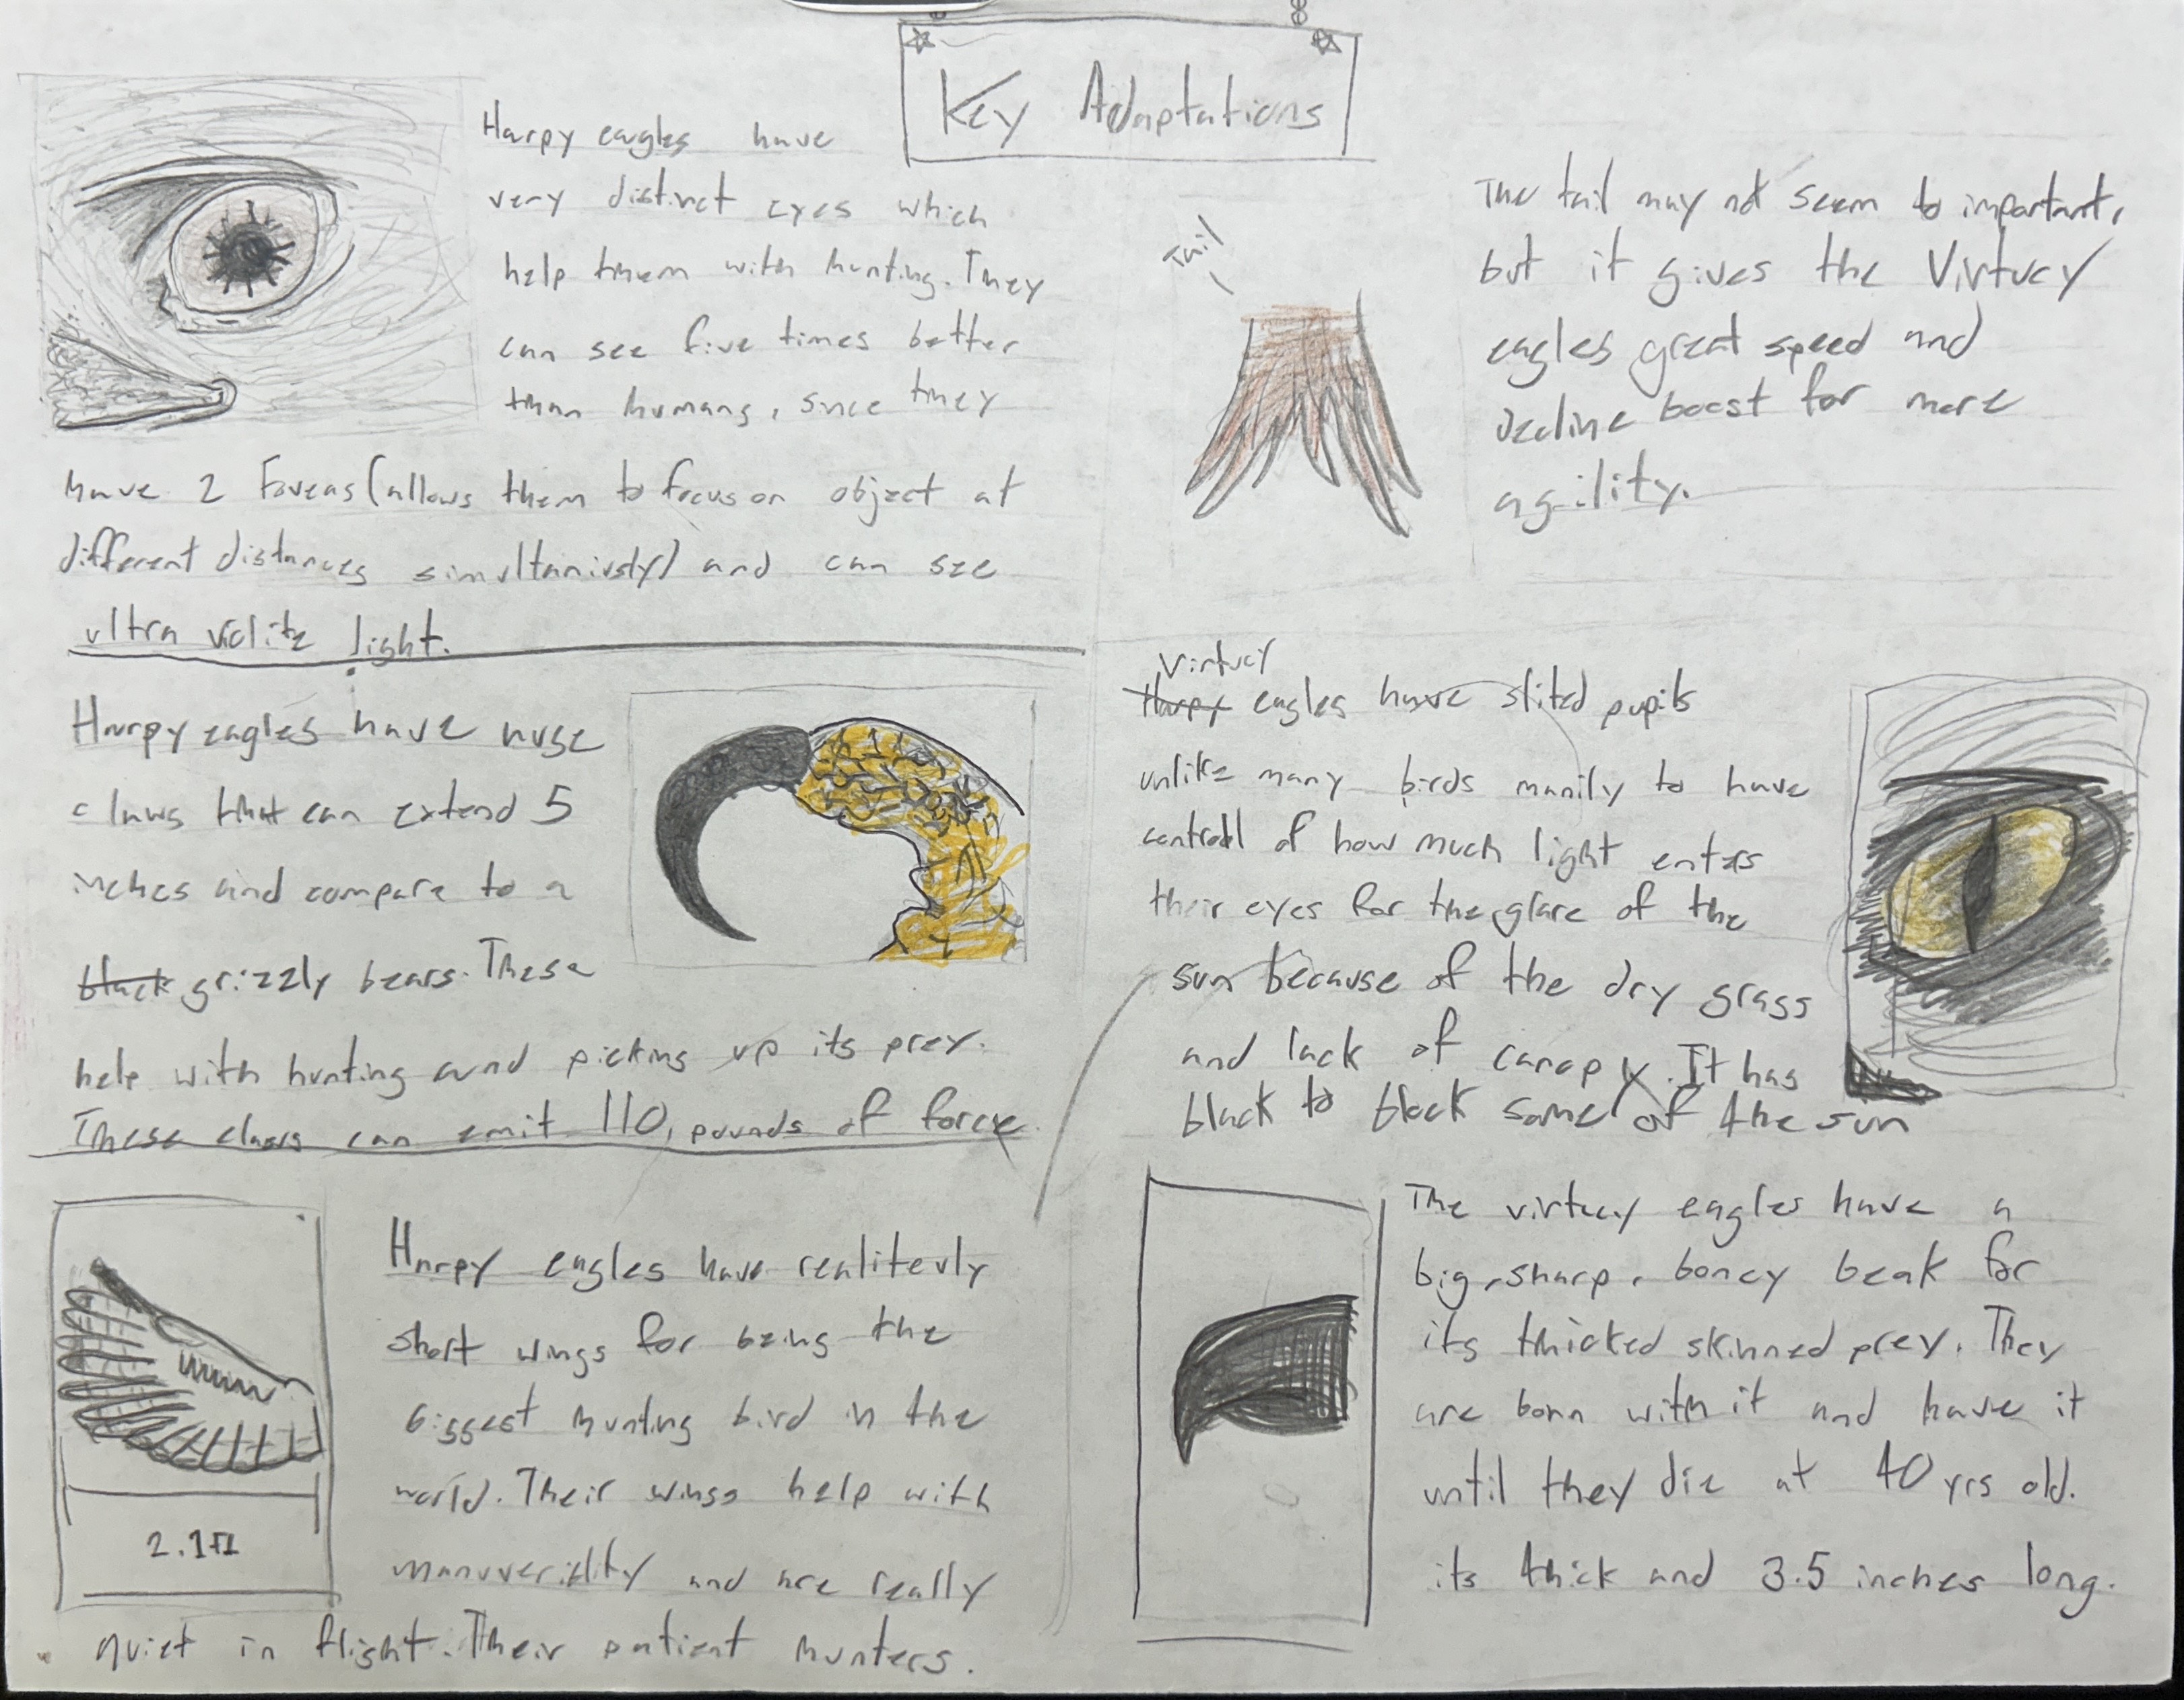 Key Adaptations
Harpy eagles have
very distinct eyes which
help them with hunting. They
can see five times better
than humans, since they
have 2 Foveas (allows them to focus on object at
different distances simultaniusly) and can see
ultra violite light.
Harpy eagles have huge
claws that can extend 5
inches and compare to a
black grizzly bears. These
help with hunting and picking up its prey.
These claws can emit 110, pounds of force.
2.1ft
Harpy eagles have realitevly
short wings for being the
biggest hunting bird in the
world. Their wings help with
manuveridity and are really
quiet in flight. Their patient hunters.
Tail
The tail may not seem to important,
but it gives the Virtucy
eagles great speed and
decline boost for more
agility.
Virtucy
Harpy eagles have slited pupils
unlike many birds manily to have
controll of how much light enters
their eyes for the glare of the
sun because of the dry grass
and lack of canopy. It has
black to block some of the sun
The virtucy eagles have a
big, sharp, boney beak for
its thicked skinned prey. They
are born with it and have it
until they die at 40 yrs old.
its thick and 3.5 inches long.